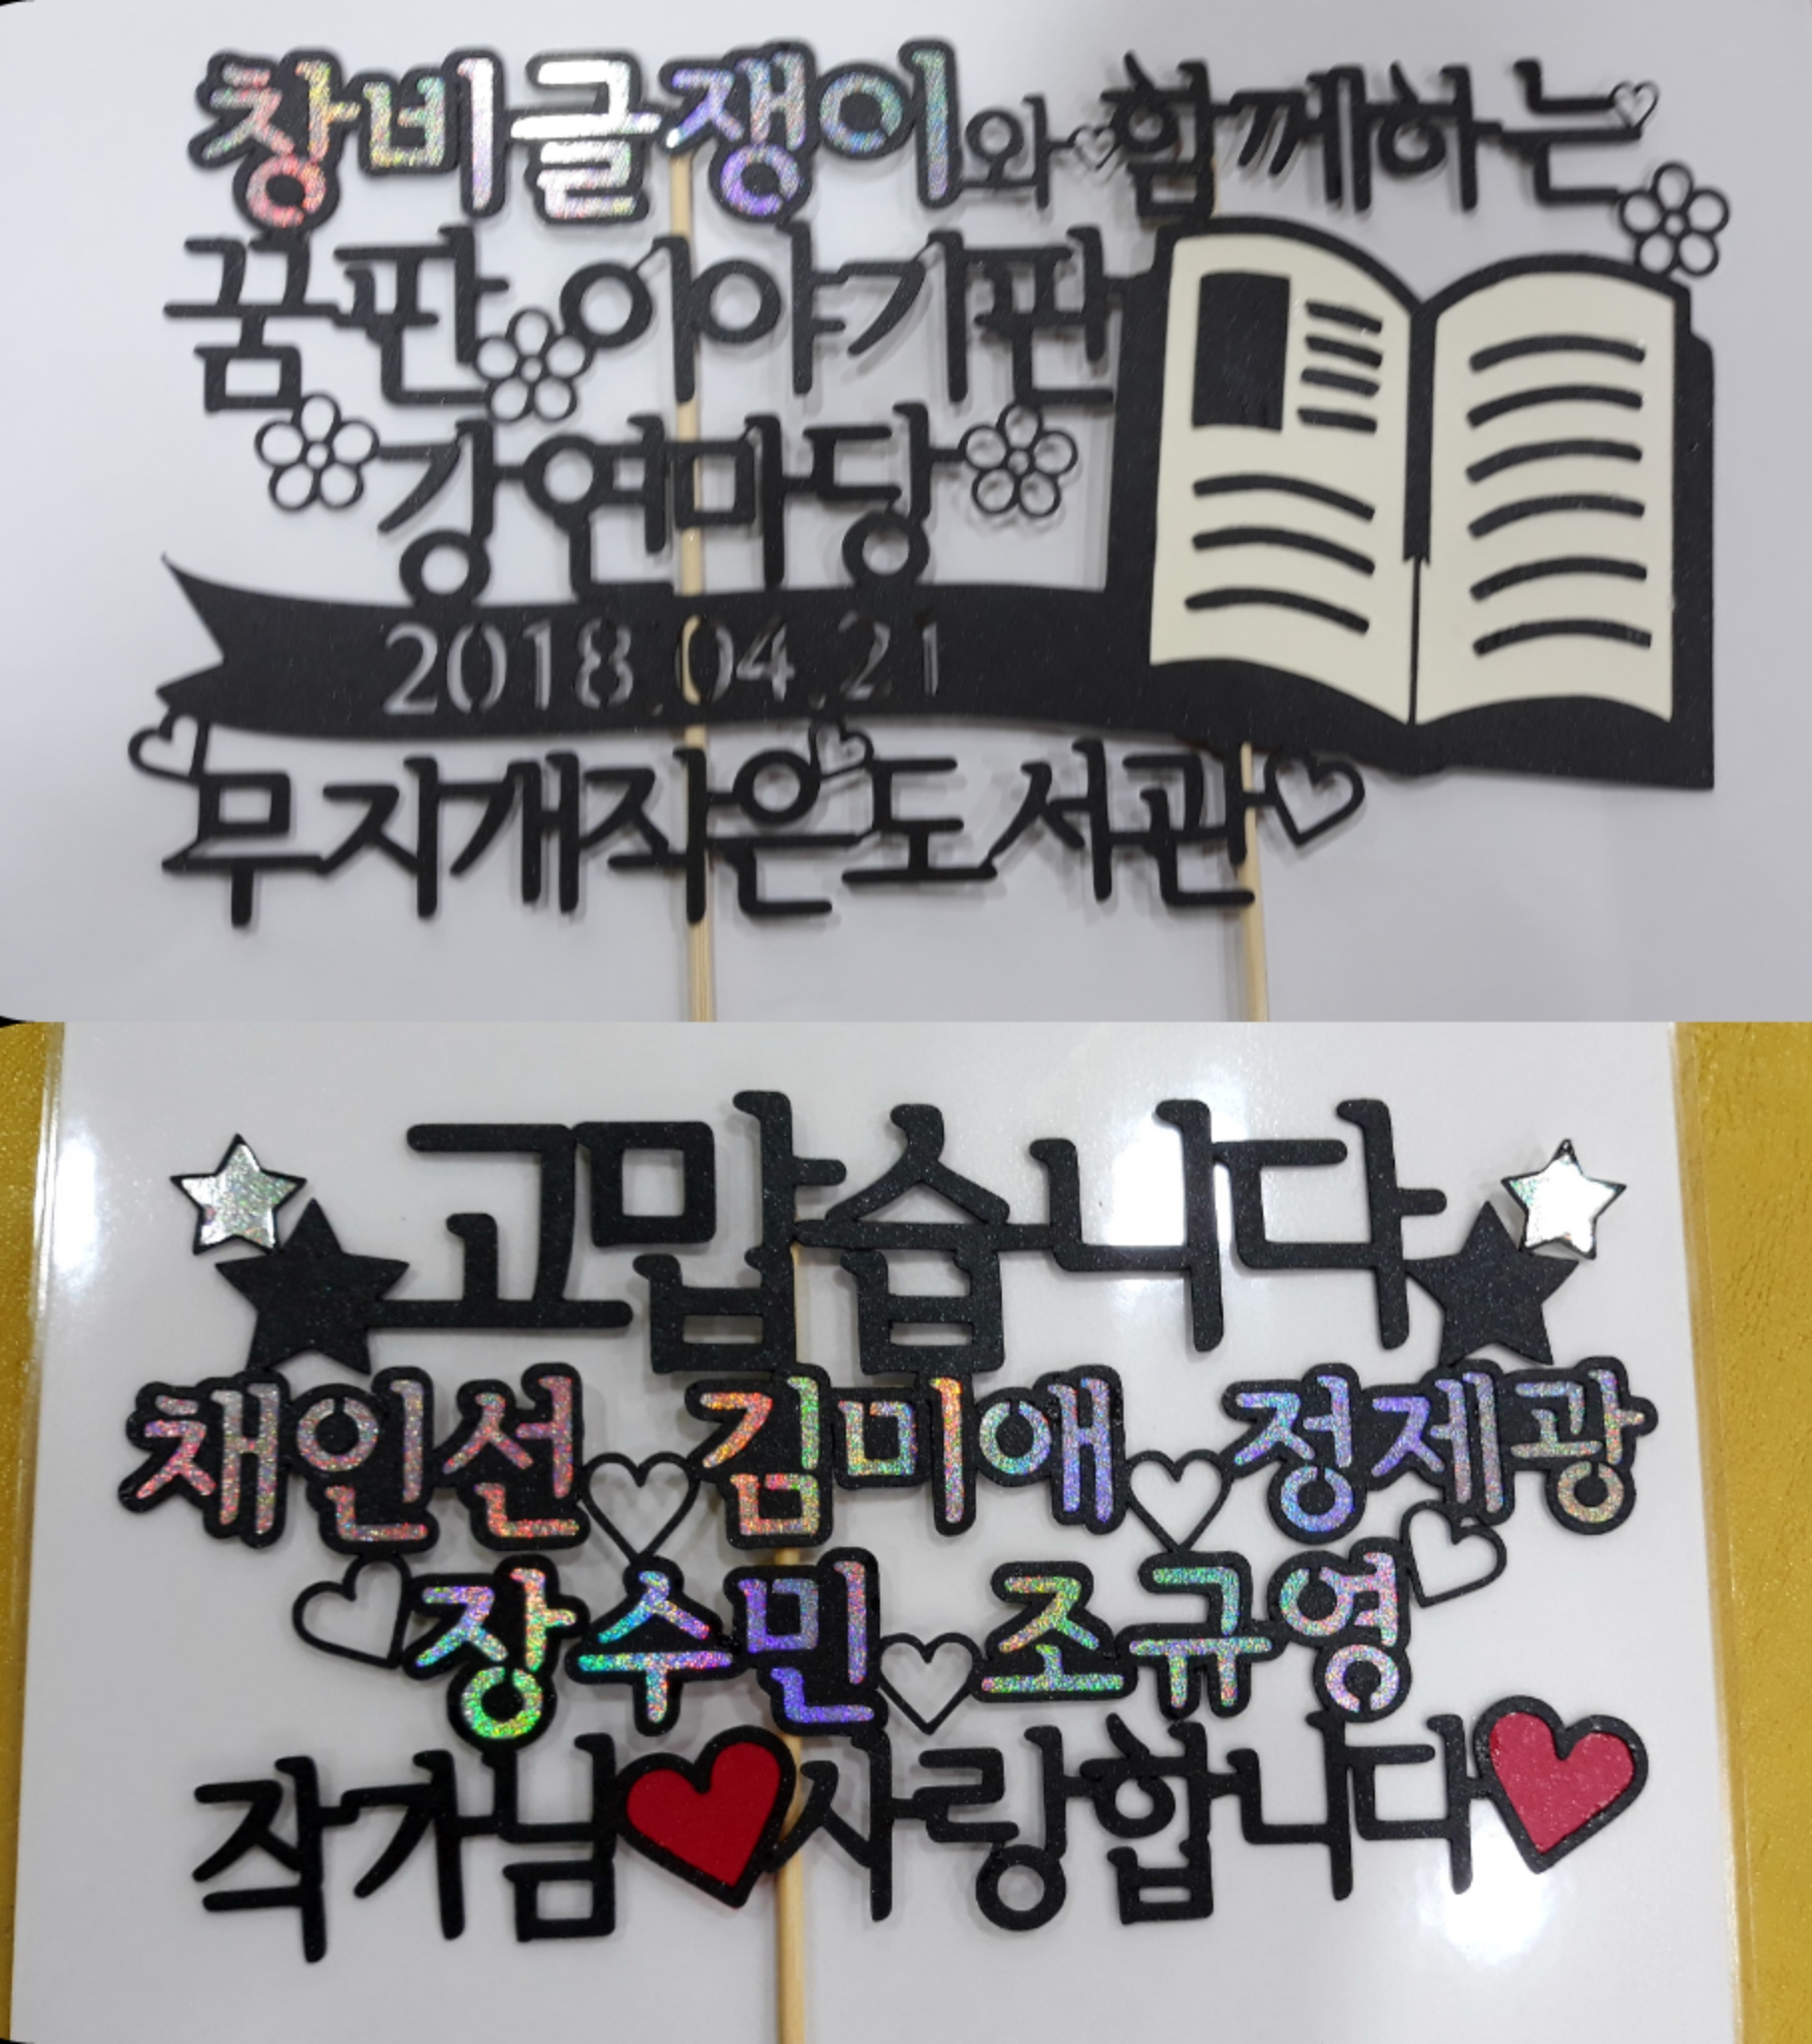 창비글쟁이와 함께하는
꿈판이야기판
강연마당
2018.04.21
무지개작은도서관
고맙습니다
채인선 김미애 정제광
장수민 조규영
작가님 사랑합니다